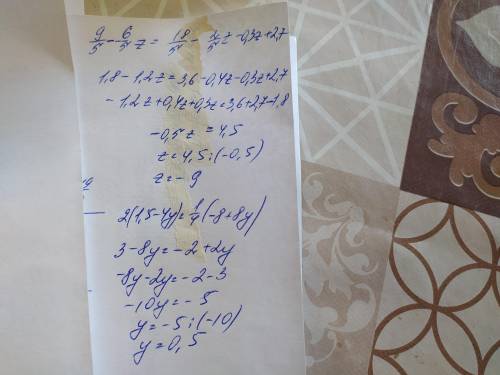 9/5 - 6/5 z = 18/5 - 2/5 z - 0,3z + 2,7
1,8 - 1,2z = 3,6 - 0,4z - 0,3z + 2,7
- 1,2z + 0,4z + 0,3z = 3,6 + 2,7 - 1,8
-0,5z = 4,5
z = 4,5 : (-0,5)
z = - 9
2(1,5 - 4y) = 1/4 (-8 + 8y)
3 - 8y = -2 + 2y
-8y - 2y = -2 - 3
-10y = - 5
y = -5 : (-10)
y = 0,5